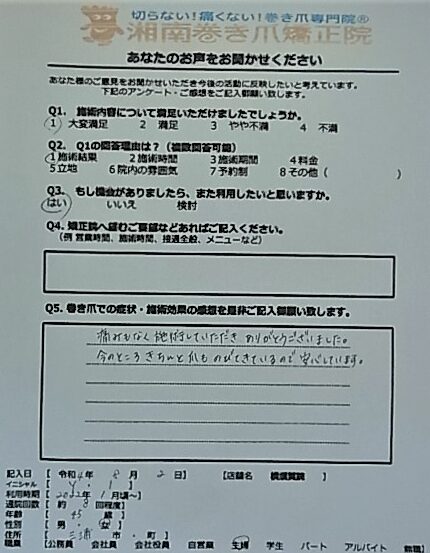 切らない！痛くない！巻き爪専門院®
湘南巻き爪矯正院
あなたのお声をお聞かせください
あなた様のご意見をお聞かせいただき今後の活動に反映したいと考えています。
下記のアンケート・ご感想をご記入御願い致します。
Q1. 施術内容について満足いただけましたでしょうか。
1 大変満足 2 満足 3 やや不満 4 不満
Q2. Q1の回答理由は？（複数回答可能）
1 施術結果 2 施術時間 3 施術期間 4 料金
5 立地 6 院内の雰囲気 7 予約制 8 その他（ ）
Q3. もし機会がありましたら、また利用したいと思いますか。
はい いいえ 検討
Q4. 矯正院へ望むご要望などあればご記入ください。
（例 営業時間、施術時間、接遇全般、メニューなど）
Q5. 巻き爪での症状・施術効果の感想を是非ご記入御願い致します。
痛みもなく施術していただきありがとうございました。
今のところきちんと爪ものびてきているので安心しています。
記入日 【 令和4年 8月 2日】 【店舗名 横須賀院 】
イニシャル 【 Y・I 】
利用時期 【 2022年 1月頃～】
通院回数 【 約 8 回程度】
年齢 【 45 歳】
性別 【 男・女 】
住所 【 三浦 市・町 】
職業 【公務員 会社員 会社役員 自営業 主婦 学生 パート アルバイト 無職】